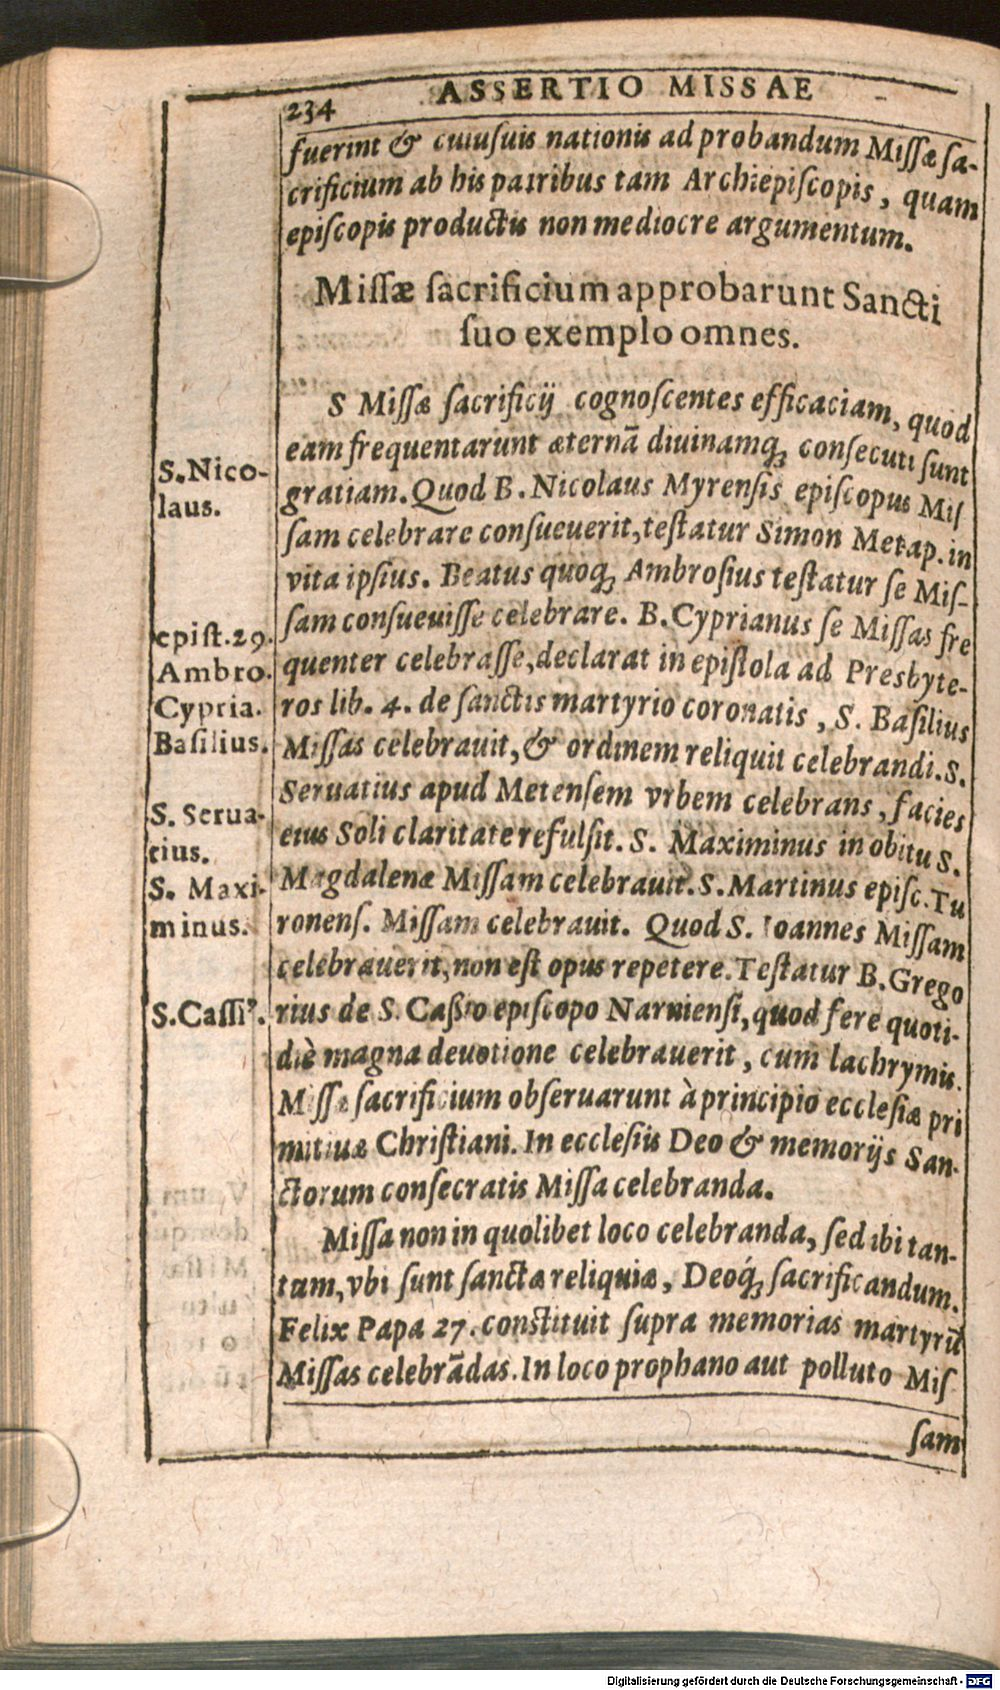 ASSERTIO MISSAE
234
fuerint & cuiuſuis nationis ad probandum Miſſæ ſa-
crificium ab his patribus tam Archiepiſcopis, quam
epiſcopis productis non mediocre argumentum.
Miſſæ ſacrificium approbarunt Sancti
ſuo exemplo omnes.
S Miſſæ ſacrificij cognoſcentes efficaciam, quod
eam frequentarunt æternā diuinamq́; conſecuti ſunt
gratiam. Quod B. Nicolaus Myrenſis epiſcopus Miſ
ſam celebrare conſueuerit, teſtatur Simon Metap. in
vita ipſius. Beatus quoq́; Ambroſius teſtatur ſe Miſ-
ſam conſueuiſſe celebrare. B. Cyprianus ſe Miſſas fre
quenter celebraſſe, declarat in epiſtola ad Presbyte-
ros lib. 4. de ſanctis martyrio coronatis, S. Baſilius
Miſſas celebrauit, & ordinem reliquit celebrandi. S.
Seruatius apud Metenſem vrbem celebrans, facies
eius Soli claritate refulſit. S. Maximinus in obitu S.
Magdalenæ Miſſam celebrauit. S. Martinus epiſc. Tu
ronenſ. Miſſam celebrauit. Quod S. Ioannes Miſſam
celebrauerit, non eſt opus repetere. Teſtatur B. Grego
rius de S. Caßio epiſcopo Narnienſi, quod fere quoti-
diè magna deuotione celebrauerit, cum lachrymis.
Miſſæ ſacrificium obſeruarunt à principio eccleſiæ pri
mitiuæ Chriſtiani. In eccleſiis Deo & memorijs San-
ctorum conſecratis Miſſa celebranda.
Miſſa non in quolibet loco celebranda, ſed ibi tan-
tum, vbi ſunt ſanctæ reliquiæ, Deoq́; ſacrificandum.
Felix Papa 27. conſtituit ſupra memorias martyrū
Miſſas celebrādas. In loco prophano aut polluto Miſ
ſam
S. Nico-
laus.
epiſt. 29.
Ambro.
Cypria.
Baſilius.
S. Serua-
tius.
S. Maxi-
minus.
S. Caſſiꝰ.
Digitalisierung gefördert durch die Deutsche Forschungsgemeinschaft - DFG